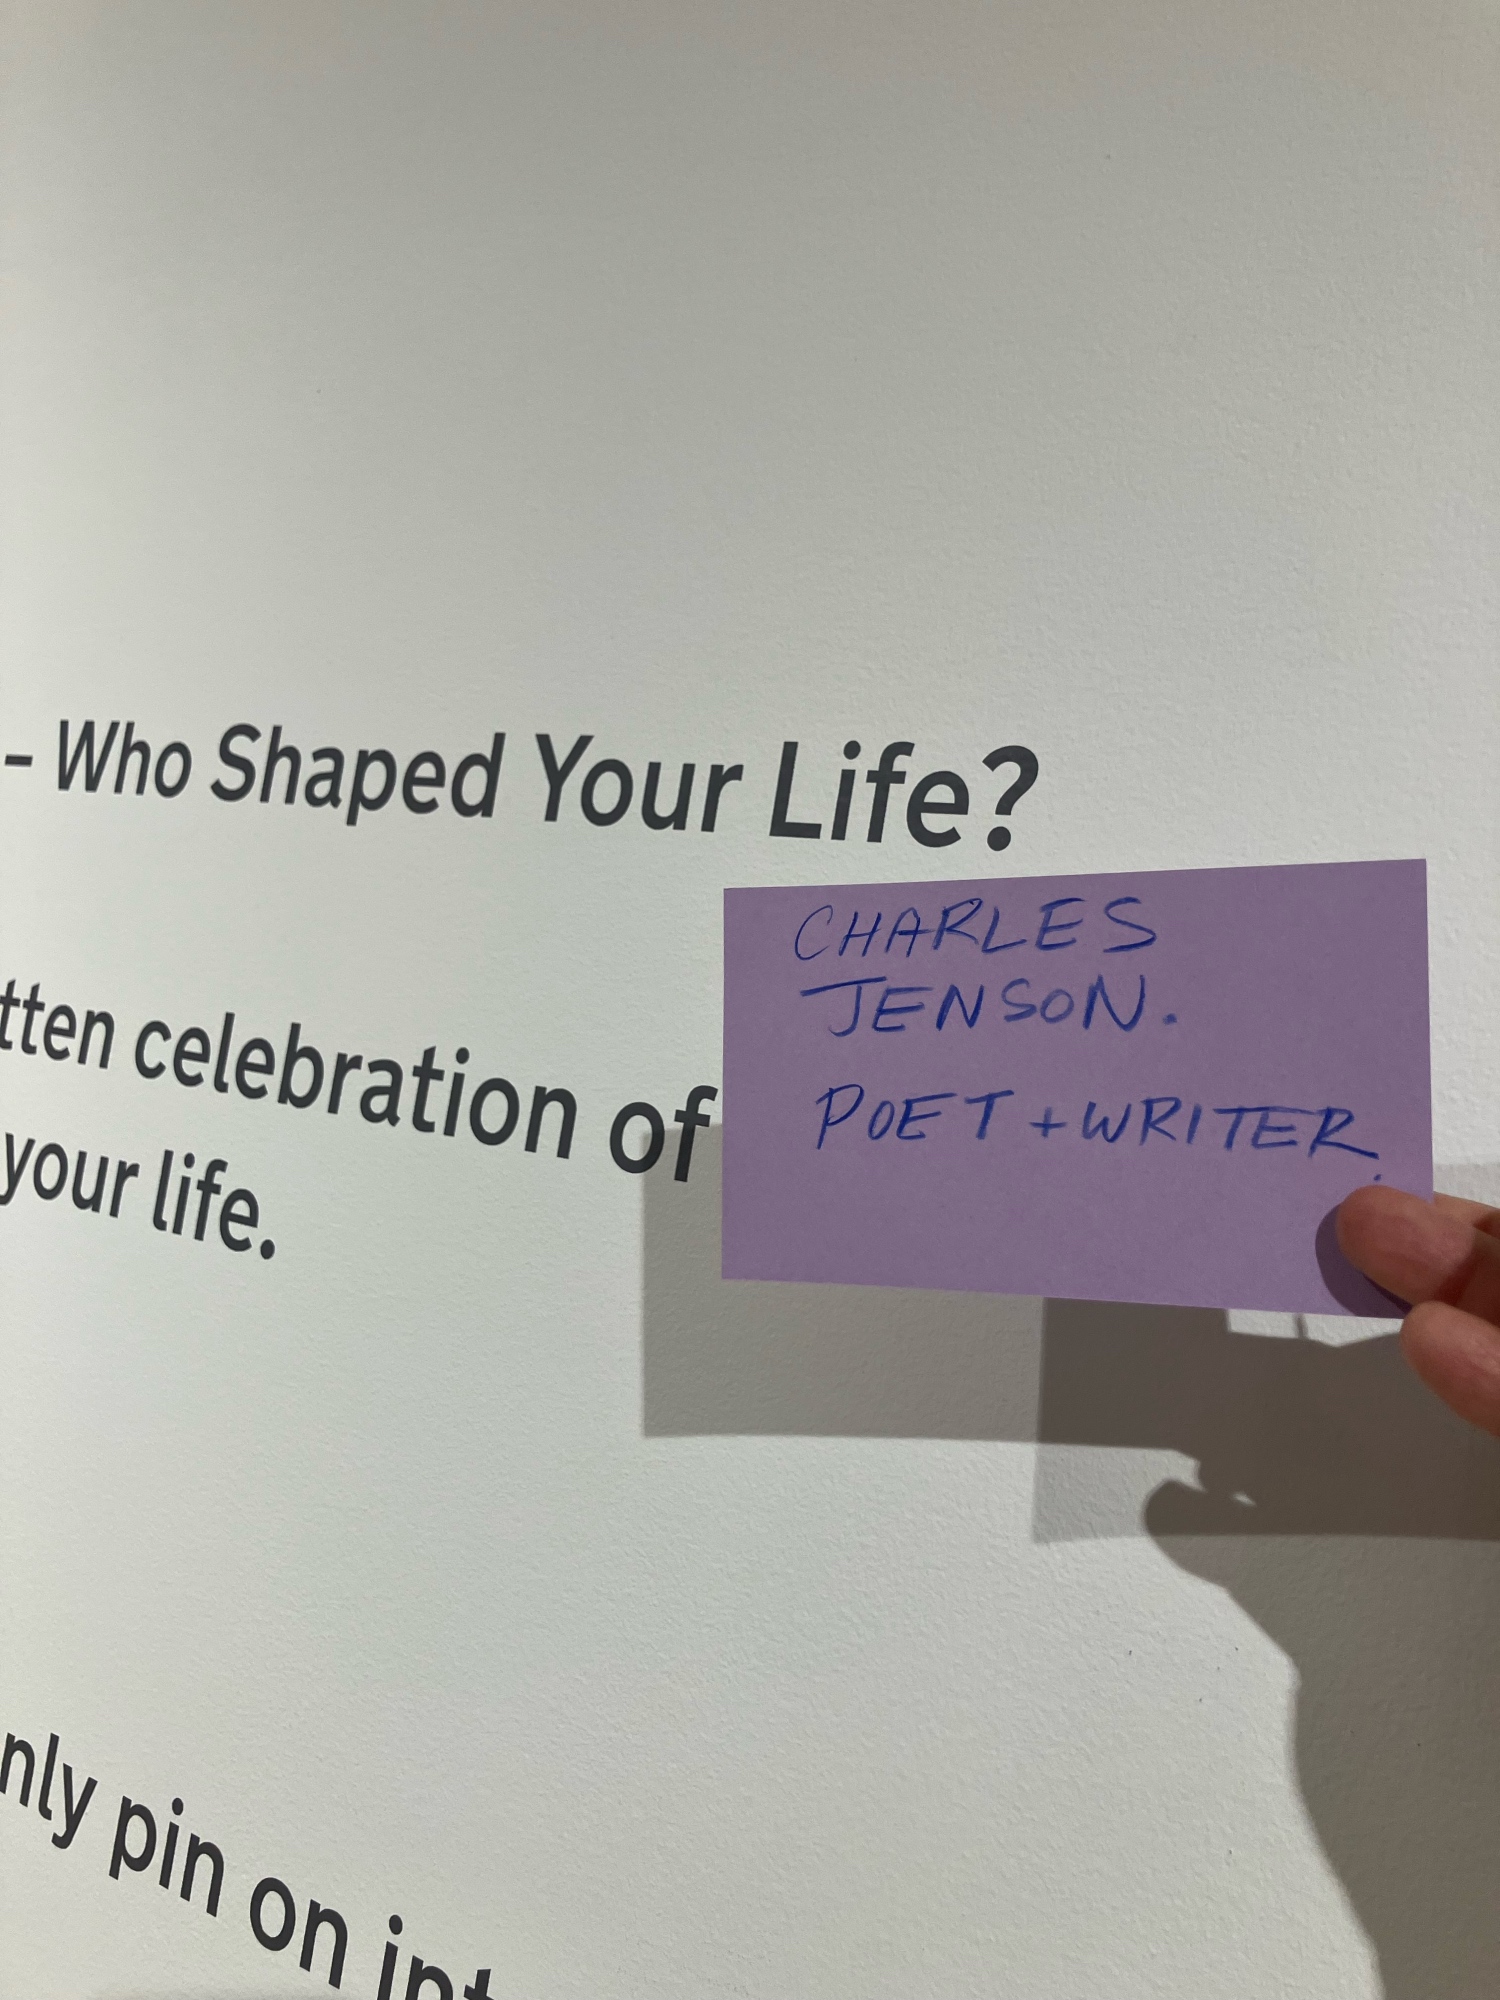 – Who Shaped Your Life?
tten celebration of
your life.
CHARLES
JENSON.
POET + WRITER.
nly pin on int